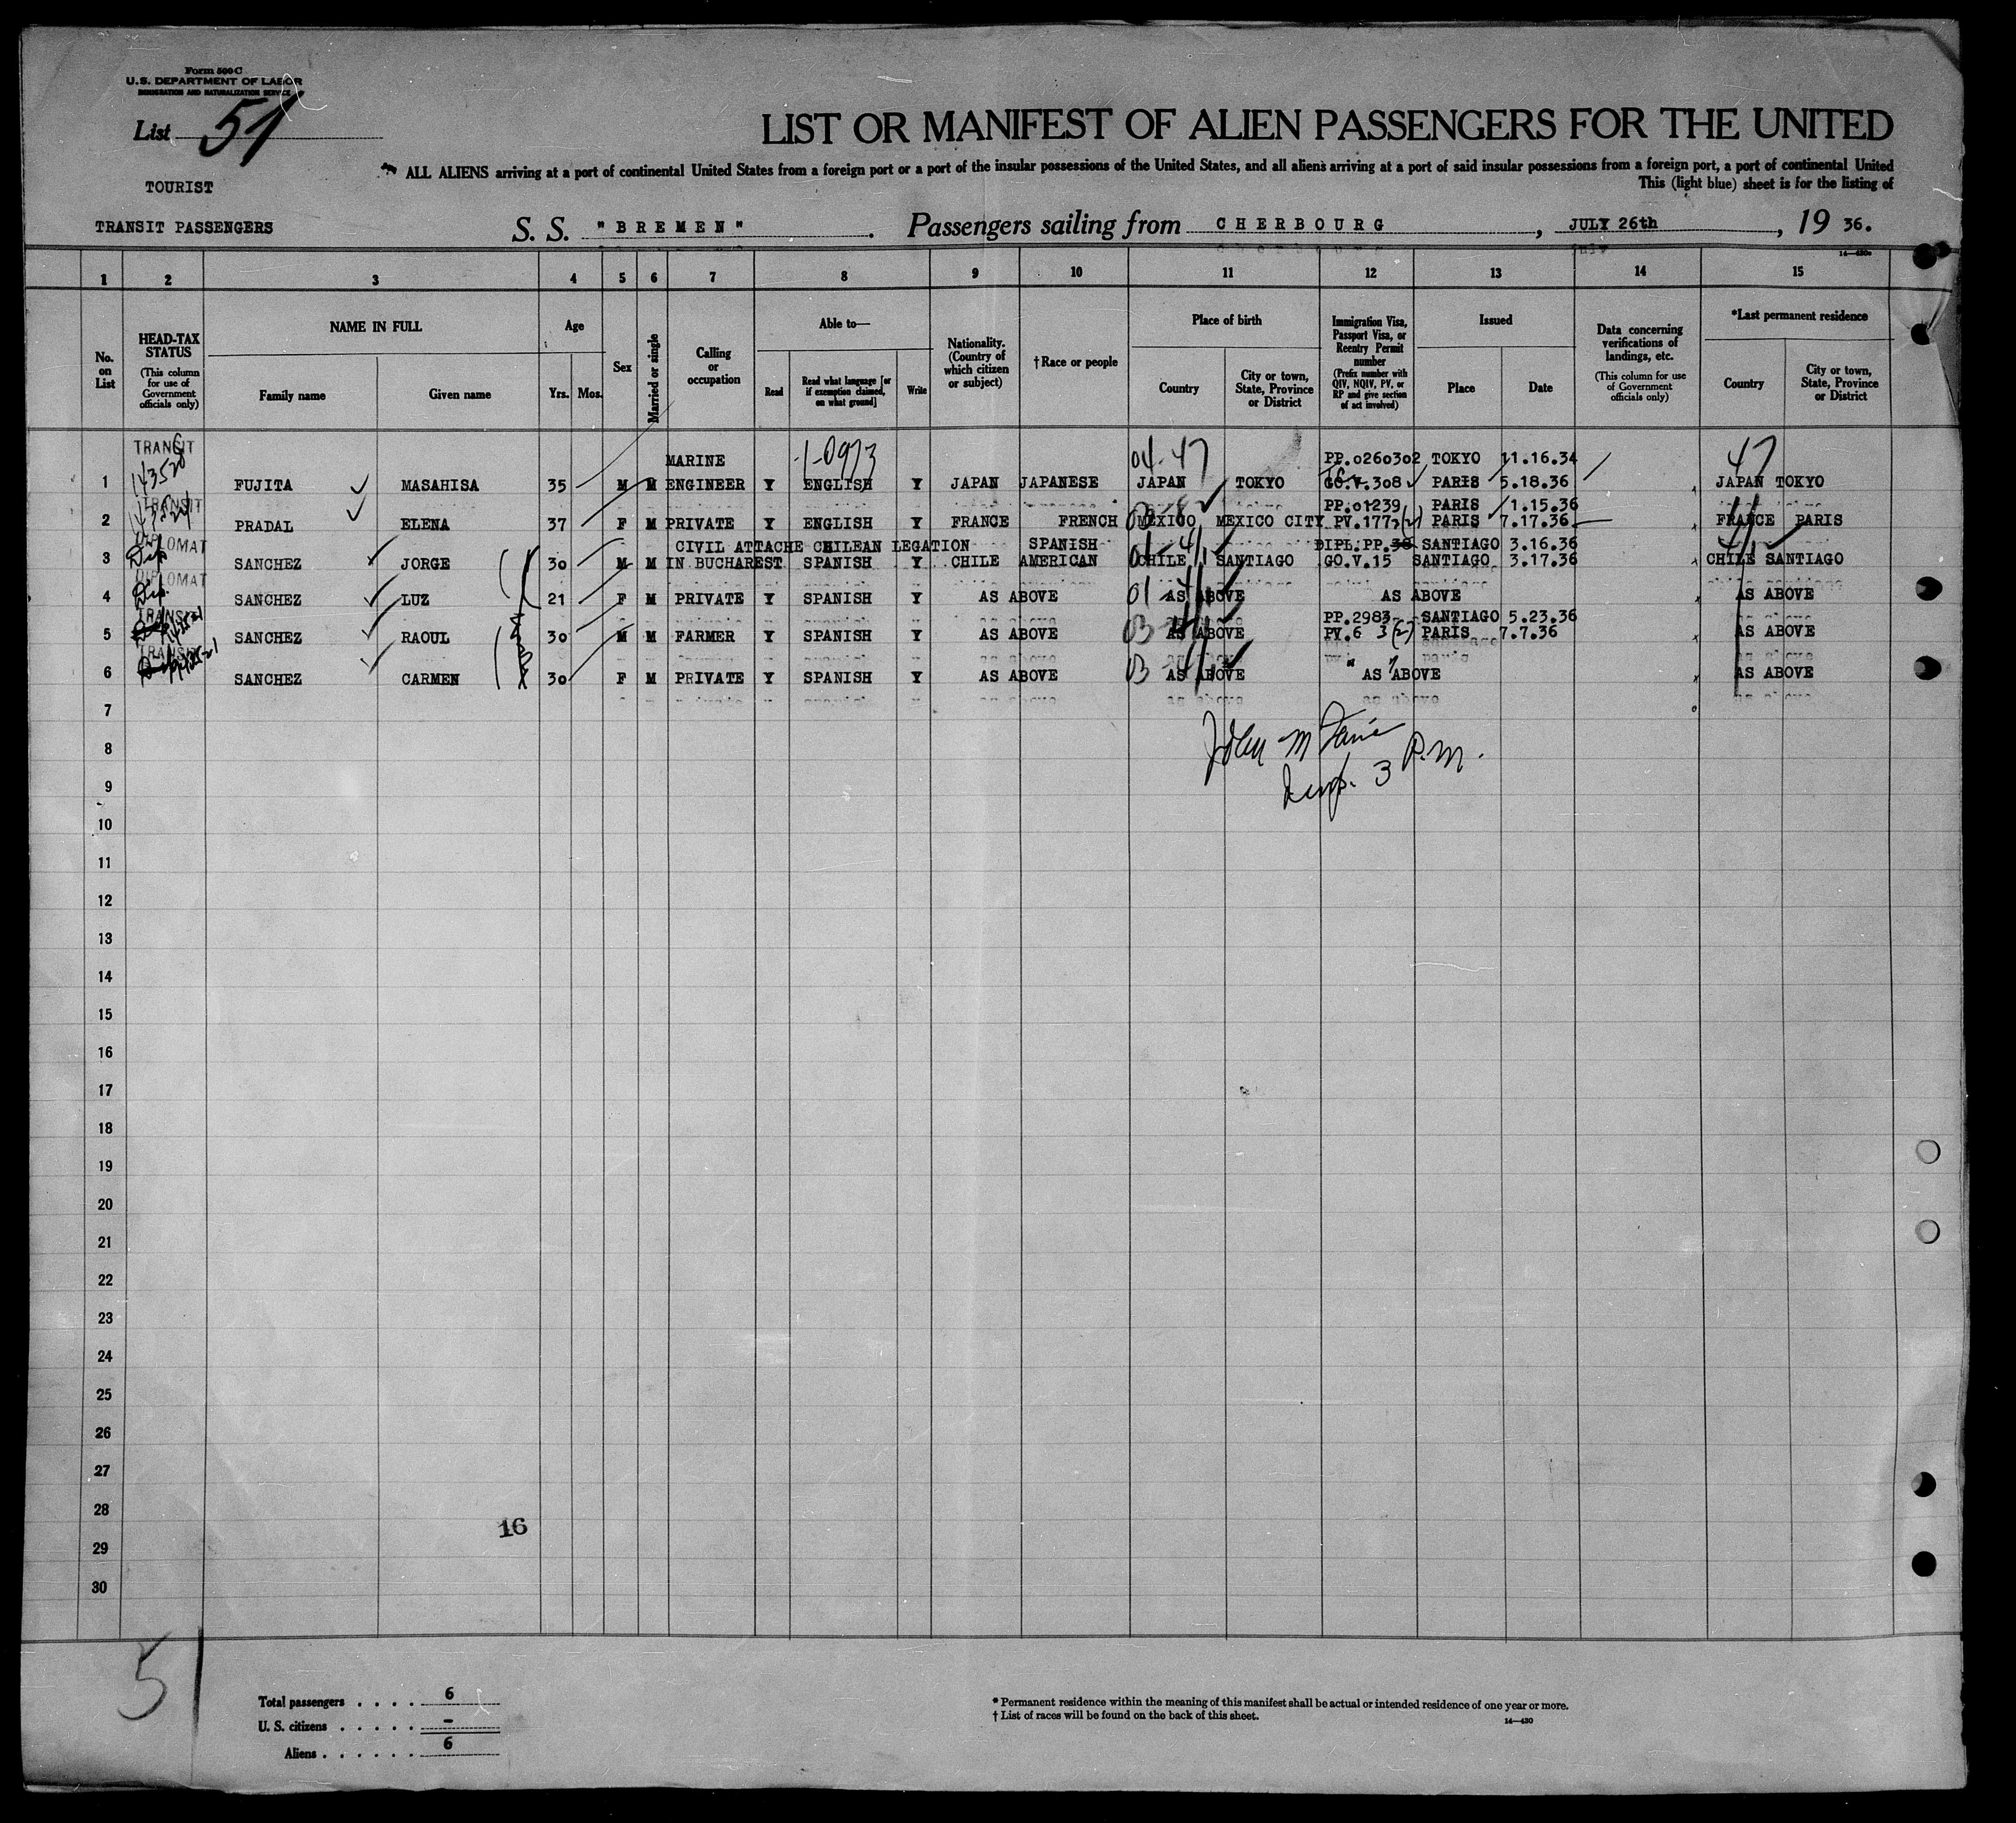 Form 500 C
U.S. DEPARTMENT OF LABOR
IMMIGRATION AND NATURALIZATION SERVICE
List 51
LIST OR MANIFEST OF ALIEN PASSENGERS FOR THE UNITED
ALL ALIENS arriving at a port of continental United States from a foreign port or a port of the insular possessions of the United States, and all aliens arriving at a port of said insular possessions from a foreign port, a port of continental United
This (light blue) sheet is for the listing of
TOURIST
TRANSIT PASSENGERS
S. S. "BREMEN". Passengers sailing from CHERBOURG, JULY 26th, 19 36.
1 2 3 4 5 6 7 8 9 10 11 12 13 14 15
No. on List
HEAD-TAX STATUS
(This column for use of Government officials only)
NAME IN FULL
Family name
Given name
Age
Yrs. Mos.
Sex
Married or single
Calling or occupation
Able to—
Read
Read what language [or if exemption claimed, on what ground]
Write
Nationality. (Country of which citizen or subject)
† Race or people
Place of birth
Country
City or town, State, Province or District
Immigration Visa, Passport Visa, or Reentry Permit number
(Prefix number with QIV, NQIV, PV, or RP and give section of act involved)
Issued
Place
Date
Data concerning verifications of landings, etc.
(This column for use of Government officials only)
*Last permanent residence
Country
City or town, State, Province or District
TRANSIT MARINE 1-0973 04-47 PP.0260302 TOKYO 11.16.34 47
1 FUJITA MASAHISA 35 M M ENGINEER Y ENGLISH Y JAPAN JAPANESE JAPAN TOKYO GO.V.308 PARIS 5.18.36 JAPAN TOKYO
TRANSIT PP.01239 PARIS 1.15.36
2 PRADAL ELENA 37 F M PRIVATE Y ENGLISH Y FRANCE FRENCH MEXICO MEXICO CITY PV.177 PARIS 7.17.36 FRANCE PARIS
DIPLOMAT CIVIL ATTACHE CHILEAN LEGATION SPANISH DIPL.PP.38 SANTIAGO 3.16.36
3 Dip. SANCHEZ JORGE 30 M M IN BUCHAREST SPANISH Y CHILE AMERICAN CHILE SANTIAGO GO.V.15 SANTIAGO 3.17.36 CHILE SANTIAGO
DIPLOMAT
4 Dip. SANCHEZ LUZ 21 F M PRIVATE Y SPANISH Y AS ABOVE AS ABOVE AS ABOVE AS ABOVE
TRANSIT PP.2983 SANTIAGO 5.23.36
5 SANCHEZ RAOUL 30 M M FARMER Y SPANISH Y AS ABOVE AS ABOVE PV.6 3(2) PARIS 7.7.36 AS ABOVE
TRANSIT
6 SANCHEZ CARMEN 30 F M PRIVATE Y SPANISH Y AS ABOVE AS ABOVE AS ABOVE AS ABOVE
7
8
9
P.M.
3
10
11
12
13
14
15
16
17
18
19
20
21
22
23
24
25
26
27
28
16
29
30
51
Total passengers . . . . 6
U. S. citizens . . . . . –
Aliens . . . . . . 6
* Permanent residence within the meaning of this manifest shall be actual or intended residence of one year or more.
† List of races will be found on the back of this sheet.
14—430